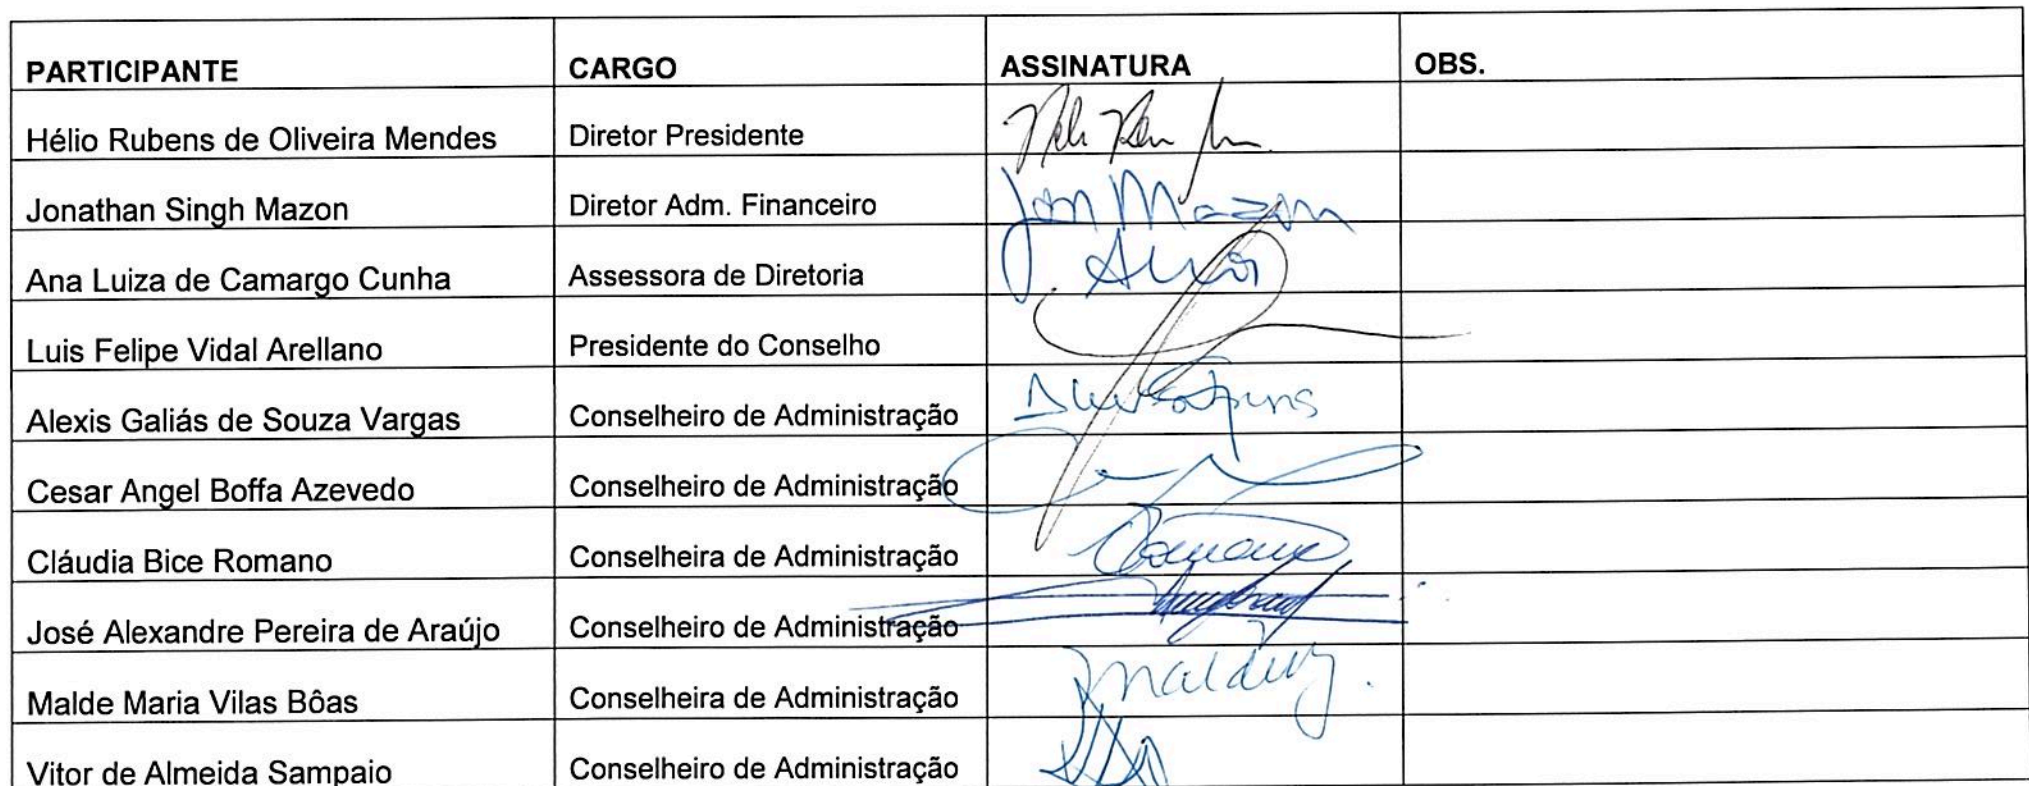 PARTICIPANTE CARGO ASSINATURA OBS.
Hélio Rubens de Oliveira Mendes Diretor Presidente
Jonathan Singh Mazon Diretor Adm. Financeiro Jon Mazon
Ana Luiza de Camargo Cunha Assessora de Diretoria
Luis Felipe Vidal Arellano Presidente do Conselho
Alexis Galiás de Souza Vargas Conselheiro de Administração
Cesar Angel Boffa Azevedo Conselheiro de Administração
Cláudia Bice Romano Conselheira de Administração
José Alexandre Pereira de Araújo Conselheiro de Administração
Malde Maria Vilas Bôas Conselheira de Administração
Vitor de Almeida Sampaio Conselheiro de Administração